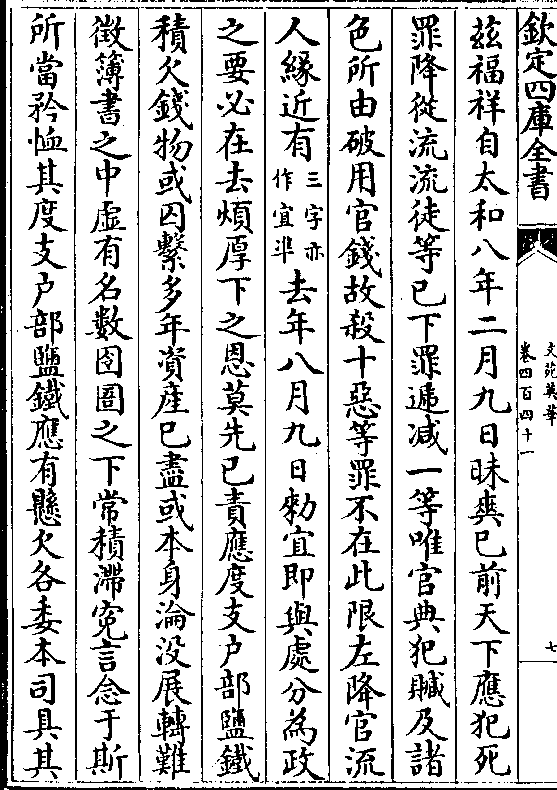 欽定四庫全書
文苑英華
卷四百四十一
七
茲福祥自太和八年二月九日昧爽已前天下應犯死
罪降從流流徒等已下罪遞减一等唯官典犯贓及諸
色所由破用官錢故殺十惡等罪不在此限左降官流
人緣近有三字亦作宜準去年八月九日勑宜即與處分為政
之要必在去煩厚下之恩莫先已責應度支户部鹽鐵
積欠錢物或囚繫多年資産已盡或本身淪没展轉難
徴簿書之中虛有名數囹圄之下常積滯寃言念于斯
所當矜恤其度支户部鹽鐵應有懸欠各委本司具其